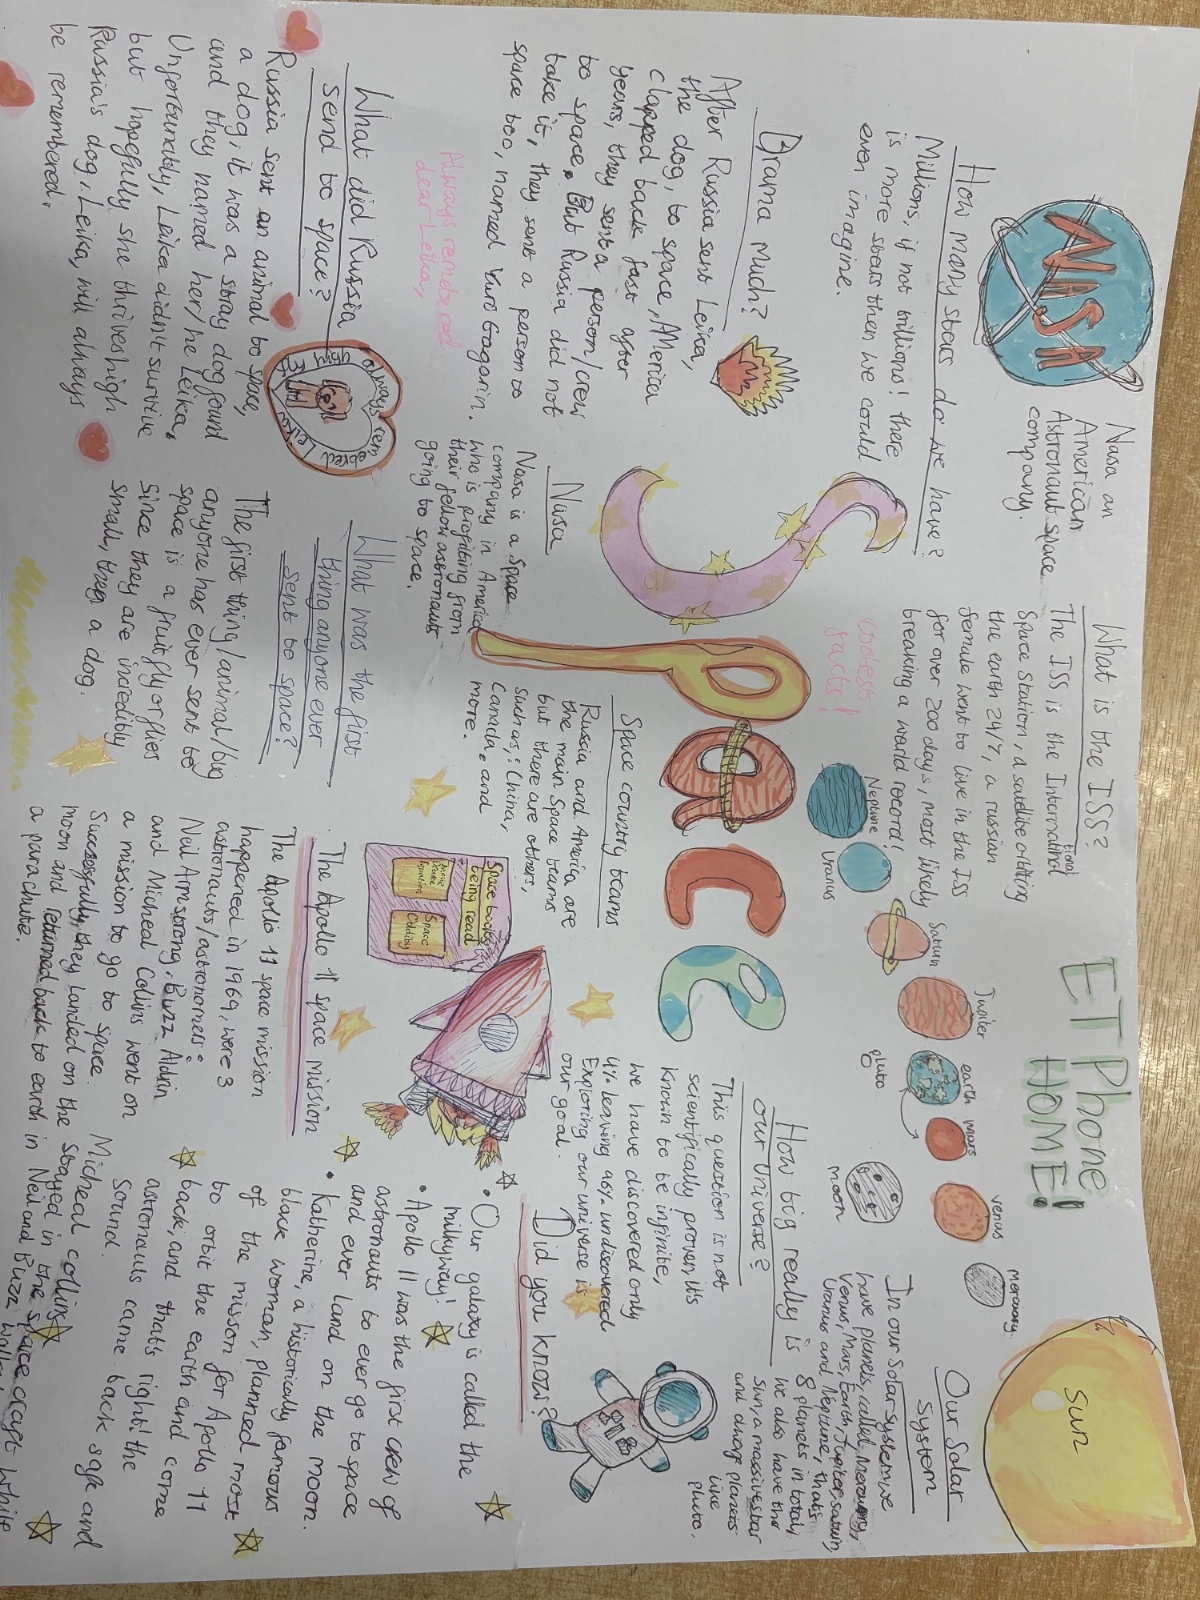 NASA
Nasa an
American
Astronaut space
company.
How many stars do we have?
Millions, if not trillions! there
is more stars then we could
even imagine.
Drama much?
After Russia sent Leika,
the dog, to space, America
clapped back fast after
years, they sent a person/crew
to space. But Russia did not
take it, they sent a person to
space too, named Yuri Gagarin.
Always remebered
dear Leika,
What did Russia
send to space?
Russia sent an animal to space,
a dog, it was a stray dog found
and they named her/he Leika.
Unfortundtly, Leika didn't survive
but hopefully she thrives high
Russia's dog, Leika, will always
be remembered.
Always remebered Leika
Nasa
Nasa is a space
company in America
who is profiting from
their fellow astronauts
going to space.
What was the first
thing anyone ever
sent to space?
The first thing/animal/bug
anyone has ever sent to
space is a fruit fly or flies
since they are incredibly
small, then a dog.
What is the ISS?
The ISS is the International
Space Station, a satelite orbiting
the earth 24/7, a russian
female went to live in the ISS
for over 200 days, most likely
breaking a world record!
coolest
facts!
Space
Space country teams
Russia and America are
the main Space teams
but there are others,
such as: China,
Canada, and
more.
Space books
being read
Space
Oddity
The Apollo 11 space mission
The Apollo 11 space mission
happened in 1969, were 3
astronauts/astronomers:
Neil Armstrong, Buzz Aldrin
and Micheal Collins went on
a mission to go to space.
Successfully, they landed on the
moon and returned back to earth in
a parachute.
Micheal collins
stayed in the space craft while
Neil and Buzz walked
ET Phone
HOME!
Neptune
Uranus
Saturn
Jupiter
earth
pluto
mars
moon
venus
Mercury
sun
How big really is
our universe?
This question is not
scientifically proven, it's
known to be infinite,
we have discovered only
4% leaving 96% undiscovered
Exploring our universe is
our goal.
Our Solar
System
In our solar system we
have planets, called, Mercury,
Venus, Mars, Earth, Jupiter, saturn,
Uranus and Neptune, that's
8 planets in total,
we also have the
sun, a massive star
and dwarf planets
like
pluto.
Did you know?
• Our galaxy is called the
milkyway!
• Apollo 11 was the first crew of
astronauts to ever go to space
and ever land on the moon.
• Katherine, a historically famous
black woman, planned most
of the misson for Apollo 11
to orbit the earth and come
back, and that's right! the
astronauts came back safe and
sound.